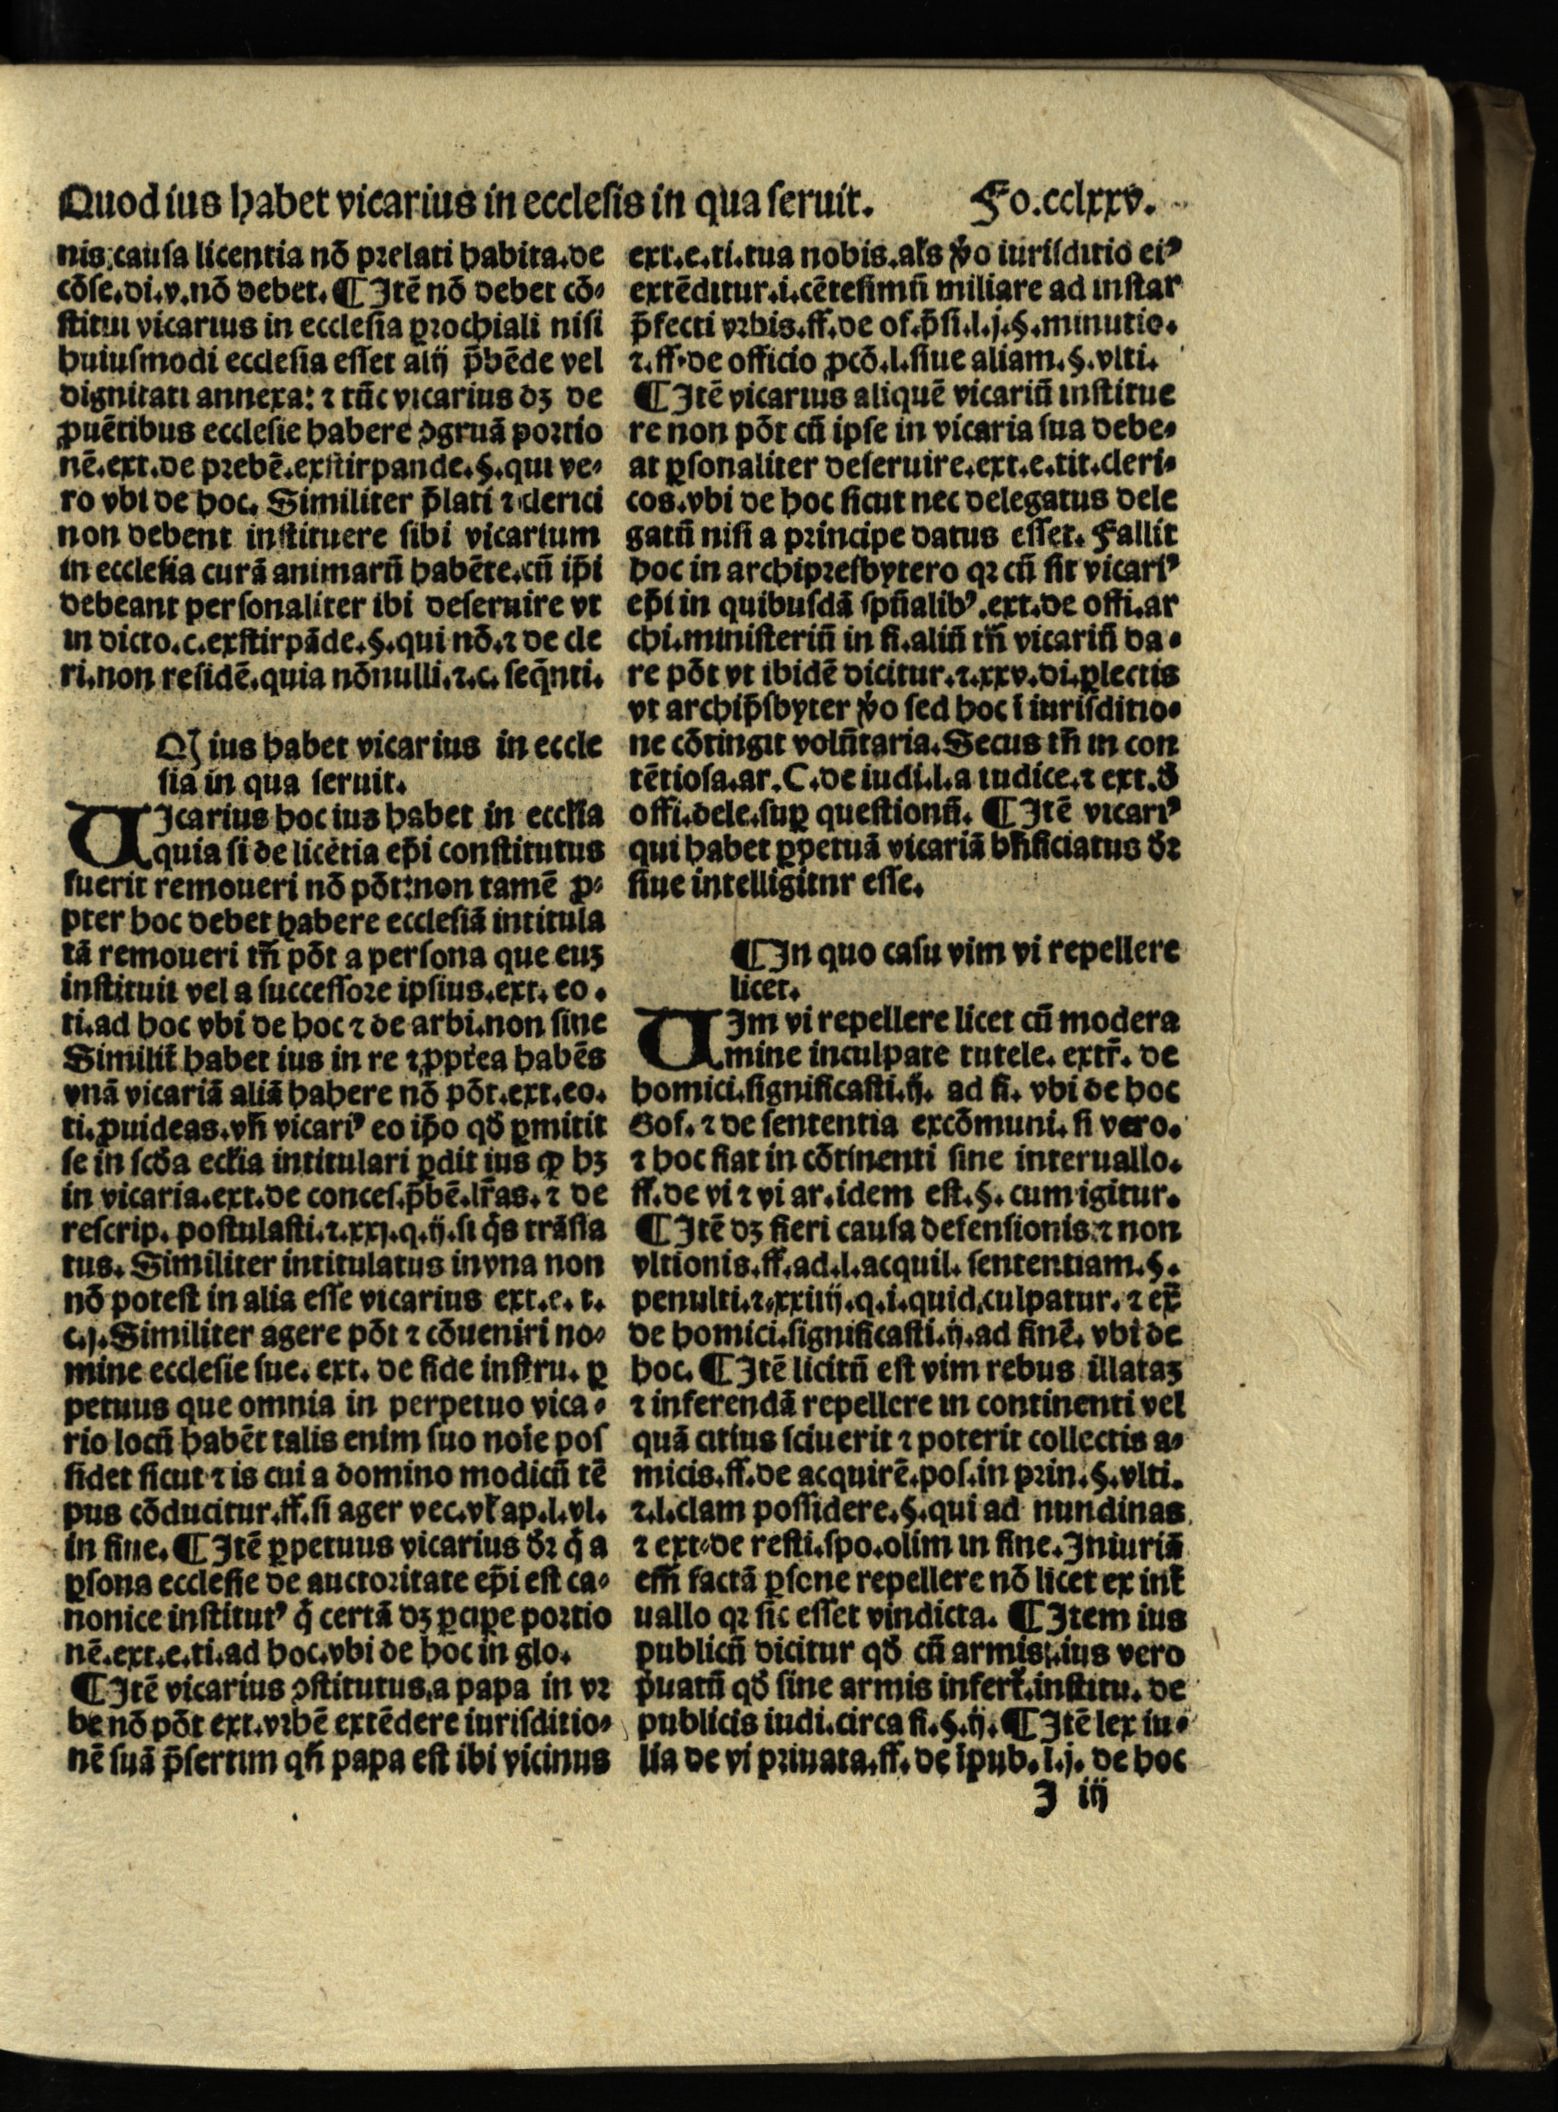 Quod ius habet vicarius in ecclesis in qua seruit. Fo.cclxxv.
nis.causa licentia nō prelati habita.de
cōse.di.v.nō debet. ¶ Itē nō debet cō-
stitui vicarius in ecclesia ꝑrochiali nisi
huiusmodi ecclesia esset alij p̄bēde vel
dignitati annexa: ⁊ tūc vicarius dꝫ de
ꝓuētibus ecclesie habere ꝯgruā portio
nē.ext.de prebē.exstirpande.§.qui ve-
ro vbi de hoc. Similiter p̄lati ⁊ clerici
non debent instituere sibi vicarium
in ecclesia curā animarū habēte.cū ip̄i
debeant personaliter ibi deseruire vt
in dicto.c.exstirpāde.§.qui nō.⁊ de cle
ri.non residē.quia nōnulli.⁊.c. seq̄nti.
Qd ius habet vicarius in eccle
sia in qua seruit.
UIcarius hoc ius habet in eccl'ia
quia si de licētia ep̄i constitutus
fuerit remoueri nō pōt:non tamē ꝓ-
pter hoc debet habere ecclesiā intitula
tā remoueri tn̄ pōt a persona que euꝫ
instituit vel a successore ipsius.ext. eo.
ti.ad hoc vbi de hoc ⁊ de arbi.non sine
Similit̄ habet ius in re ⁊ ꝓpt'ea habēs
vnā vicariā aliā habere nō pōt.ext.eo.
ti.ꝓuideas.vn̄ vicariꝰ eo ip̄o qd̄ ꝑmitit
se in scd̄a eccl'ia intitulari ꝑdit ius qd̄ hꝫ
in vicaria.ext.de conces.p̄bē.lr̄as.⁊ de
rescrip. postulasti.⁊.xxj.q.ij.si q̄s trāsla
tus. Similiter intitulatus in vna non
nō potest in alia esse vicarius ext.e. t.
c.j. Similiter agere pōt ⁊ cōueniri no-
mine ecclesie sue. ext. de fide instru. ꝑ
petuus que omnia in perpetuo vica-
rio locū habēt talis enim suo noīe pos
sidet sicut ⁊ is cui a domino modicū tē
pus cōducitur.ff.si ager vec.vl' ap.l.vl.
in fine. ¶ Itē ꝑpetuus vicarius dr̄ q̄ a
ꝑsona ecclesie de auctoritate ep̄i est ca-
nonice institutꝰ q̄ certā dꝫ ꝑcipe portio
nē.ext.e.ti.ad hoc.vbi de hoc in glo.
¶ Itē vicarius ꝯstitutus.a papa in vr
be nō pōt ext.vrbē extēdere iurisditio-
nē suā p̄sertim qn̄ papa est ibi vicinus
ext.e.ti.tua nobis.al's v̄o iurisditio eiꝰ
extēditur.i.cētesimū miliare ad instar
p̄fecti vrbis.ff.de of.p̄si.l.j.§.minutio.
⁊.ff.de officio ꝓcō.l.siue aliam.§.vlti.
¶ Itē vicarius aliquē vicariū institue
re non pōt cū ipse in vicaria sua debe-
at ꝑsonaliter deseruire.ext.e.tit.cleri-
cos.vbi de hoc sicut nec delegatus dele
gatū nisi a principe datus esset. Fallit
hoc in archipresbytero qr cū sit vicariꝰ
ep̄i in quibusdā spūalibꝰ.ext.de offi.ar
chi.ministeriū in fi.aliū tn̄ vicariū da-
re pōt vt ibidē dicitur.⁊.xxv.di.ꝑlectis
vt archip̄sbyter v̄o sed hoc ī iurisditio-
ne cōtingit volūtaria. Secus tn̄ in con
tētiosa.ar. C.de iudi.l.a iudice.⁊ ext.d̄
offi.dele.suꝑ questionū. ¶ Itē vicariꝰ
qui habet ꝑpetuā vicariā bn̄ficiatus dr̄
siue intelligitnr esse.
¶ In quo casu vim vi repellere
licet.
UIm vi repellere licet cū modera
mine inculpate tutele. extr̄. de
homici.significasti.ij. ad fi. vbi de hoc
Gof. ⁊ de sententia excōmuni. si vero.
⁊ hoc fiat in cōtinenti sine interuallo.
ff.de vi ⁊ vi ar.idem est.§. cum igitur.
¶ Itē dꝫ fieri causa defensionis ⁊ non
vltionis.ff.ad.l.acquil. sententiam.§.
penulti.⁊.xxiiij.q.i.quid.culpatur. ⁊ ex̄
de homici.significasti.ij.ad finē. vbi de
hoc. ¶ Itē licitū est vim rebus illataꝫ
⁊ inferendā repellere in continenti vel
quā citius sciuerit ⁊ poterit collectis a-
micis.ff.de acquirē.pos.in prin.§.vlti.
⁊.l.clam possidere.§.qui ad nundinas
⁊ ext-de resti.spo.olim in fine. Iniuriā
em̄ factā ꝑsone repellere nō licet ex int̄
uallo qr sic esset vindicta. ¶ Item ius
publicū dicitur qd̄ cū armis.ius vero
p̄uatū qd̄ sine armis infert̄.institu. de
publicis iudi.circa fi.§.ij. ¶ Itē lex iu-
lia de vi priuata.ff. de ipub. l.j. de hoc
I iij